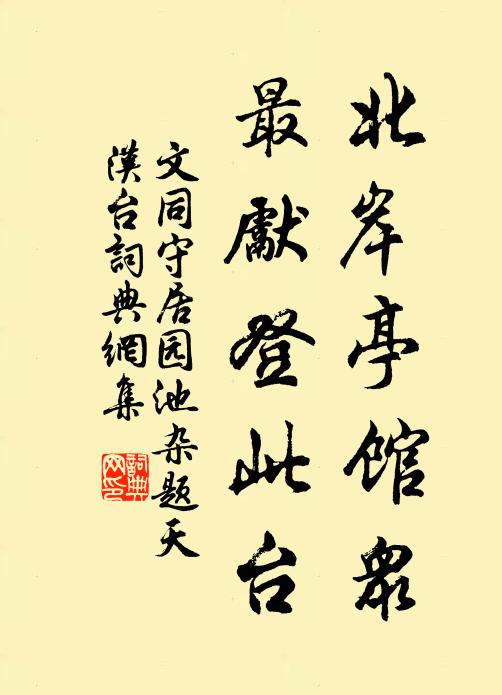 北岸亭馆众
最献登此台
文同守居园池杂题天
汉台詞典網集
詞典网印